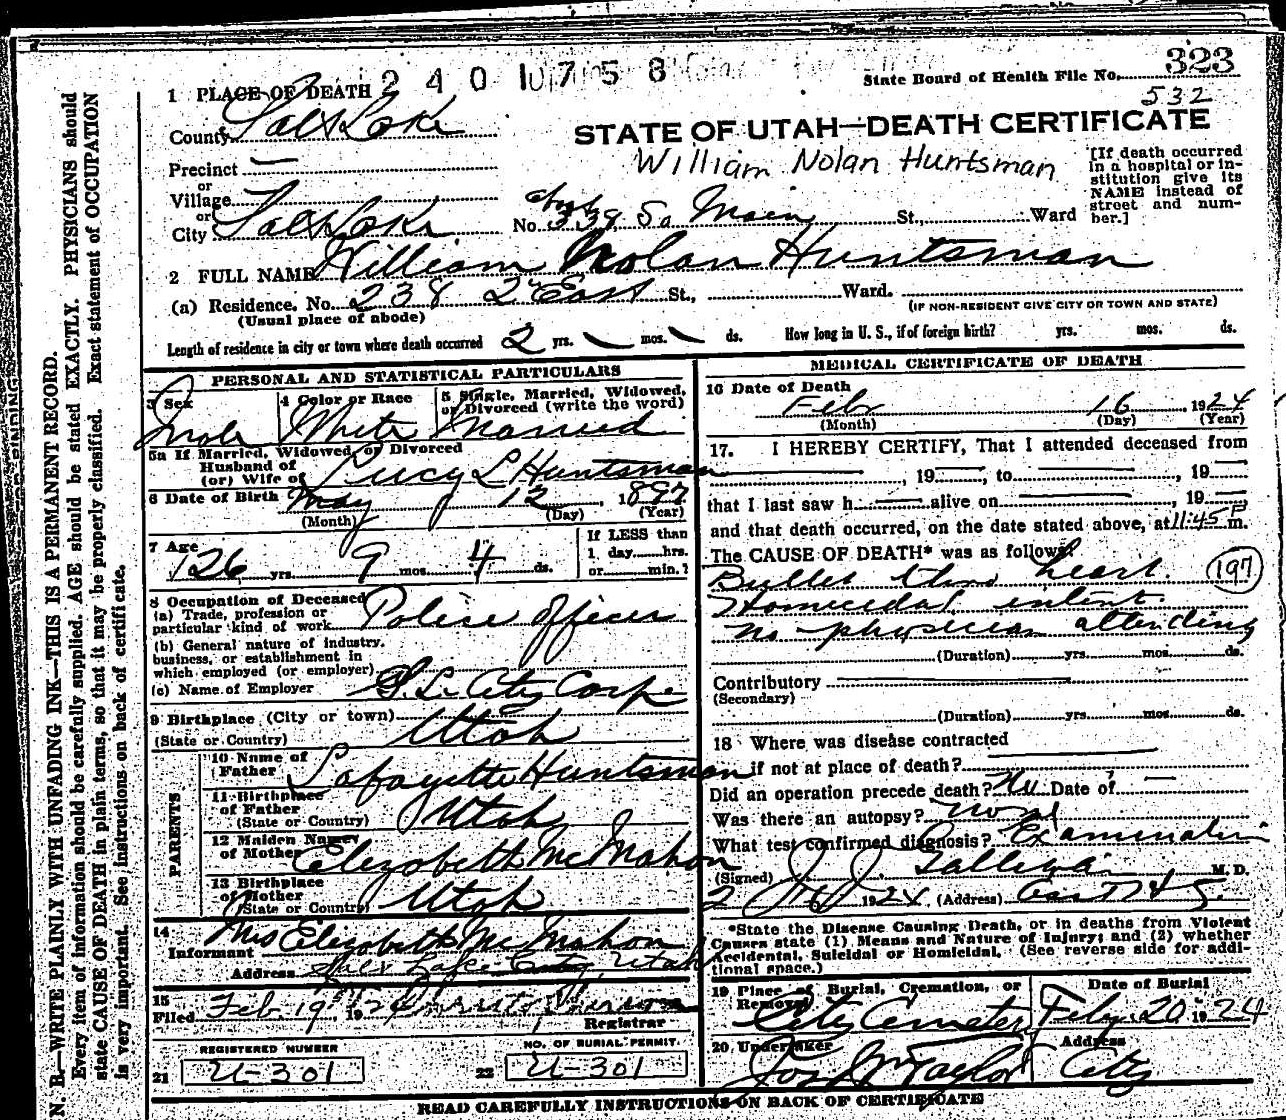 323
State Board of Health File No.
532
2 4 0 1 7 5 8
1 PLACE OF DEATH
County Salt Lake
STATE OF UTAH—DEATH CERTIFICATE
William Nolan Huntsman
Precinct —
or
Village
or
City Salt Lake
No. 339 So Main St., Ward
[If death occurred
in a hospital or in-
stitution give its
NAME instead of
street and num-
ber.]
2 FULL NAME William Nolan Huntsman
(a) Residence. No. 238 2nd East St., Ward.
(Usual place of abode)
(IF NON-RESIDENT GIVE CITY OR TOWN AND STATE)
Length of residence in city or town where death occurred 2 yrs. mos. ds. How long in U. S., if of foreign birth? yrs. mos. ds.
PERSONAL AND STATISTICAL PARTICULARS
3 Sex
Male
4 Color or Race
White
5 Single, Married, Widowed,
or Divorced (write the word)
Married
5a If Married, Widowed, or Divorced
Husband of
(or) Wife of Lucy L Huntsman
6 Date of Birth May 12, 1897
(Month) (Day) (Year)
7 Age
26 yrs. 9 mos. 4 ds.
If LESS than
1 day......hrs.
or......min.?
8 Occupation of Deceased
(a) Trade, profession or
particular kind of work Police Officer
(b) General nature of industry.
business, or establishment in
which employed (or employer)
(c) Name of Employer S. L. City Corp
9 Birthplace (City or town)
(State or Country) Utah
PARENTS
10 Name of
Father Lafayette Huntsman
11 Birthplace
of Father
(State or Country) Utah
12 Maiden Name
of Mother Elizabeth McMahon
13 Birthplace
of Mother
(State or Country) Utah
14
Informant Mrs Elizabeth McMahon
Address Salt Lake City, Utah
15
Filed Feb 19 1924
Registrar
REGISTERED NUMBER
21 U-301
NO. OF BURIAL PERMIT.
22 U-301
MEDICAL CERTIFICATE OF DEATH
16 Date of Death
Feb 16, 1924
(Month) (Day) (Year)
17. I HEREBY CERTIFY, That I attended deceased from
, 19 , to , 19
that I last saw h alive on , 19
and that death occurred, on the date stated above, at 11:45 P m.
The CAUSE OF DEATH* was as follows:
Bullet thro heart. 197
Homicidal intent.
no physician attending
(Duration) yrs. mos. ds.
Contributory
(Secondary)
(Duration) yrs. mos. ds.
18 Where was disease contracted
if not at place of death?
Did an operation precede death? No Date of —
Was there an autopsy?
What test confirmed diagnosis? Examination
(Signed) M. D.
1924 (Address)
*State the Disease Causing Death, or in deaths from Violent
Causes state (1) Means and Nature of Injury; and (2) whether
Accidental, Suicidal or Homicidal. (See reverse side for addi-
tional space.)
19 Place of Burial, Cremation, or
Removal
City Cemetery
Date of Burial
Feby. 20 1924
20 Undertaker
Jos Wm Taylor
Address
City
READ CAREFULLY INSTRUCTIONS ON BACK OF CERTIFICATE
N. B.—WRITE PLAINLY WITH UNFADING INK—THIS IS A PERMANENT RECORD.
Every item of information should be carefully supplied. AGE should be stated EXACTLY. PHYSICIANS should
state CAUSE OF DEATH in plain terms, so that it may be properly classified. Exact statement of OCCUPATION
is very important. See instructions on back of certificate.